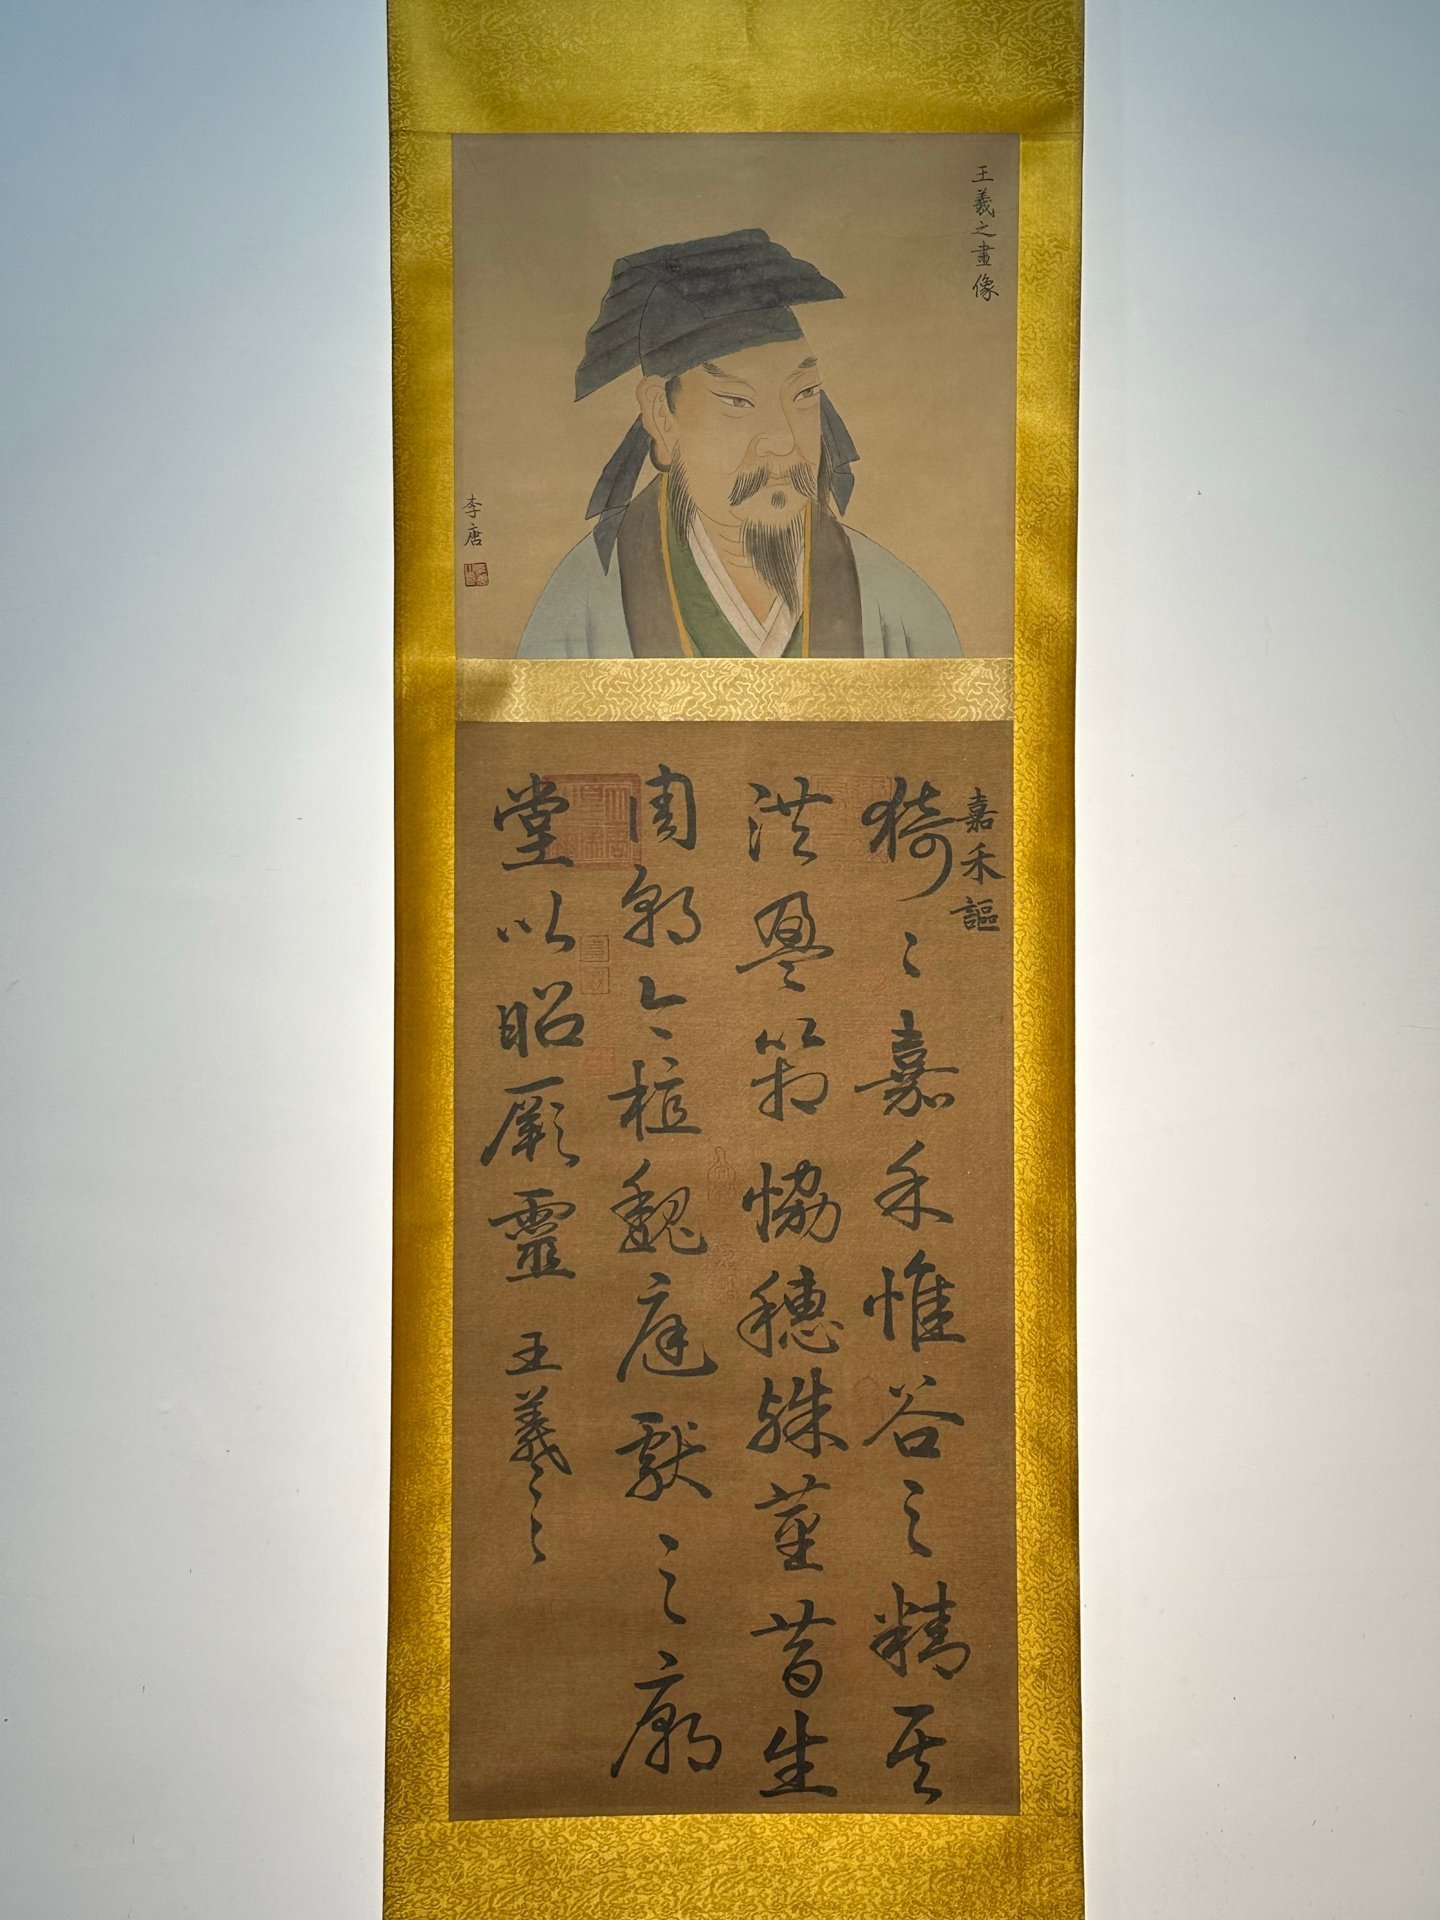 王羲之畫像
李唐
嘉禾謳
猗〻嘉禾惟谷之精其
洪盈箱協穗殊莖昔生
周朝今植魏庭獻之廟
堂以昭厥靈 王羲之